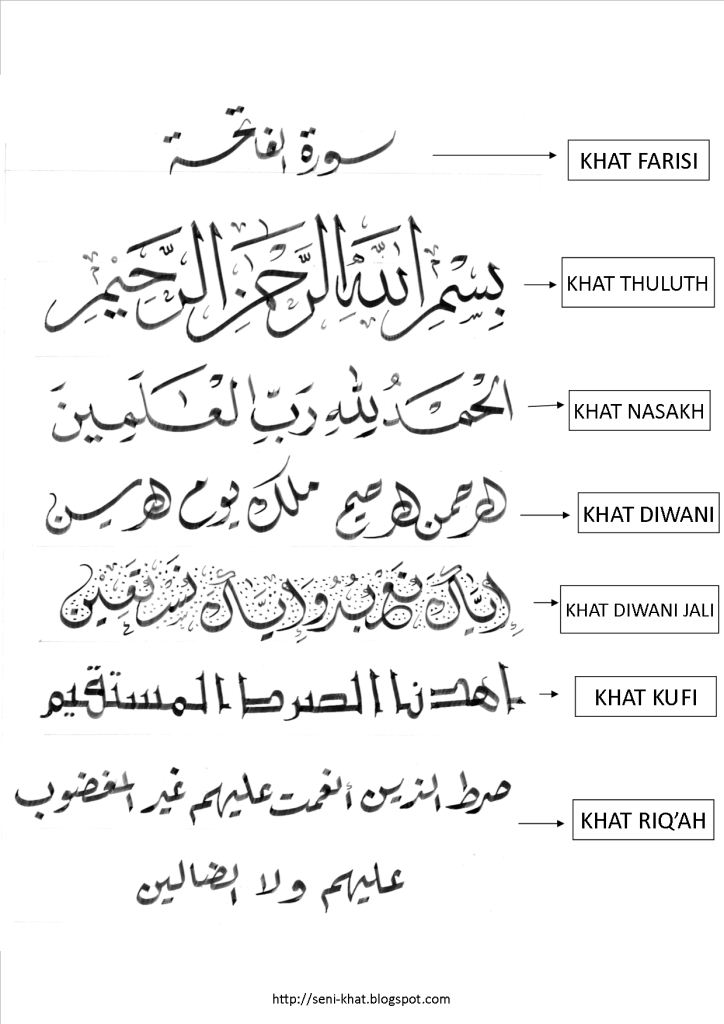 سورة الفاتحة
KHAT FARISI
بِسْمِ اللَّهِ الرَّحْمَنِ الرَّحِيمِ
KHAT THULUTH
الْحَمْدُ لِلَّهِ رَبِّ الْعَٰلَمِينَ
KHAT NASAKH
الرحمن الرحيم ملك يوم الدين
KHAT DIWANI
إِيَّاكَ نَعْبُدُ وَإِيَّاكَ نَسْتَعِينُ
KHAT DIWANI JALI
اهدنا الصرط المستقيم
KHAT KUFI
صرط الذين أنعمت عليهم غير المغضوب
KHAT RIQ'AH
عليهم ولا الضالين
http://seni-khat.blogspot.com